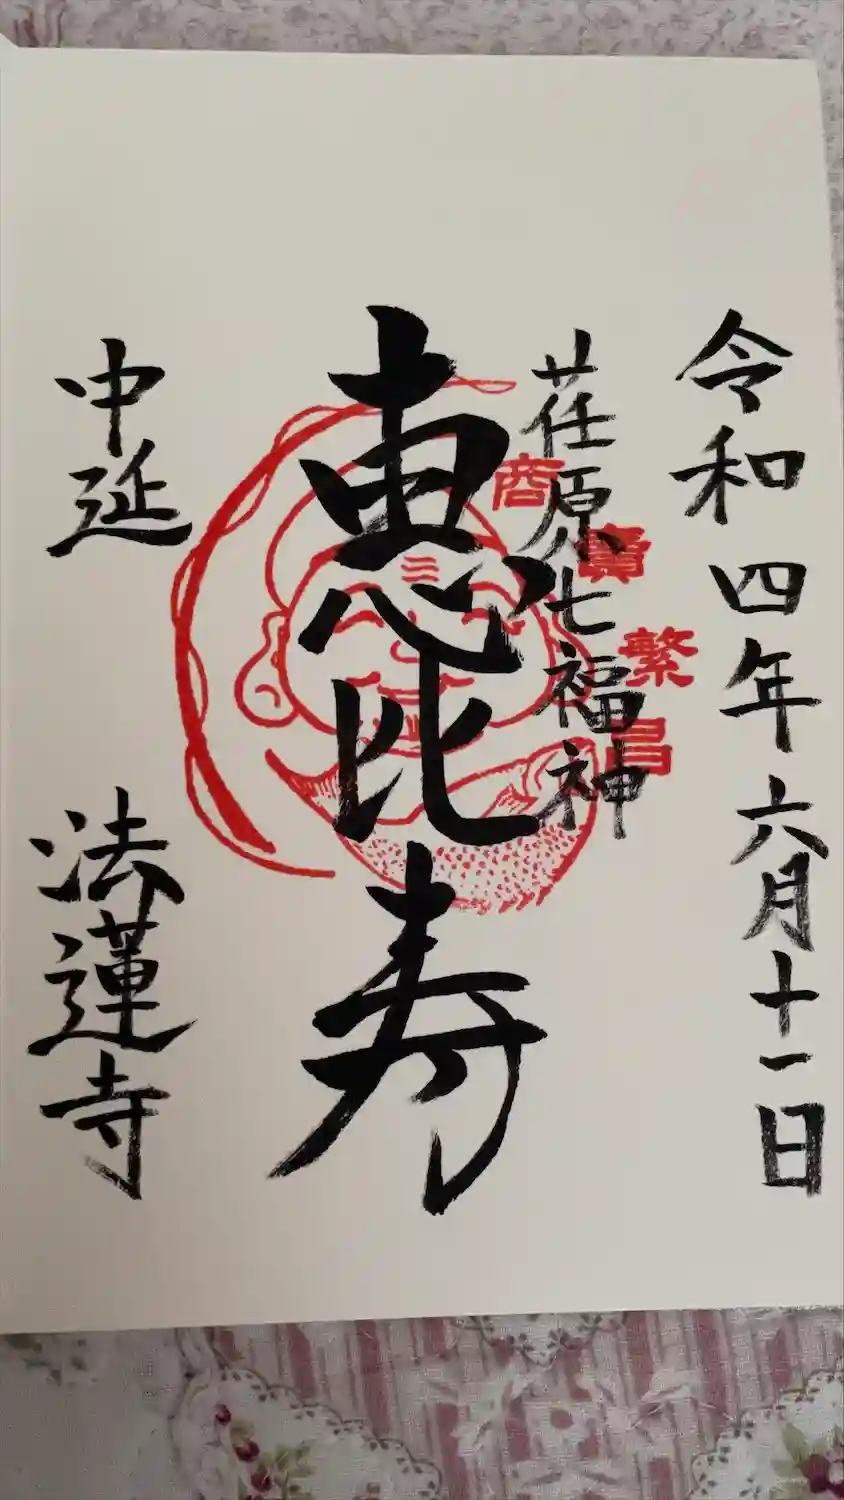 令和四年六月十一日
荏原七福神
商賣繁昌
恵比寿
中延 法蓮寺